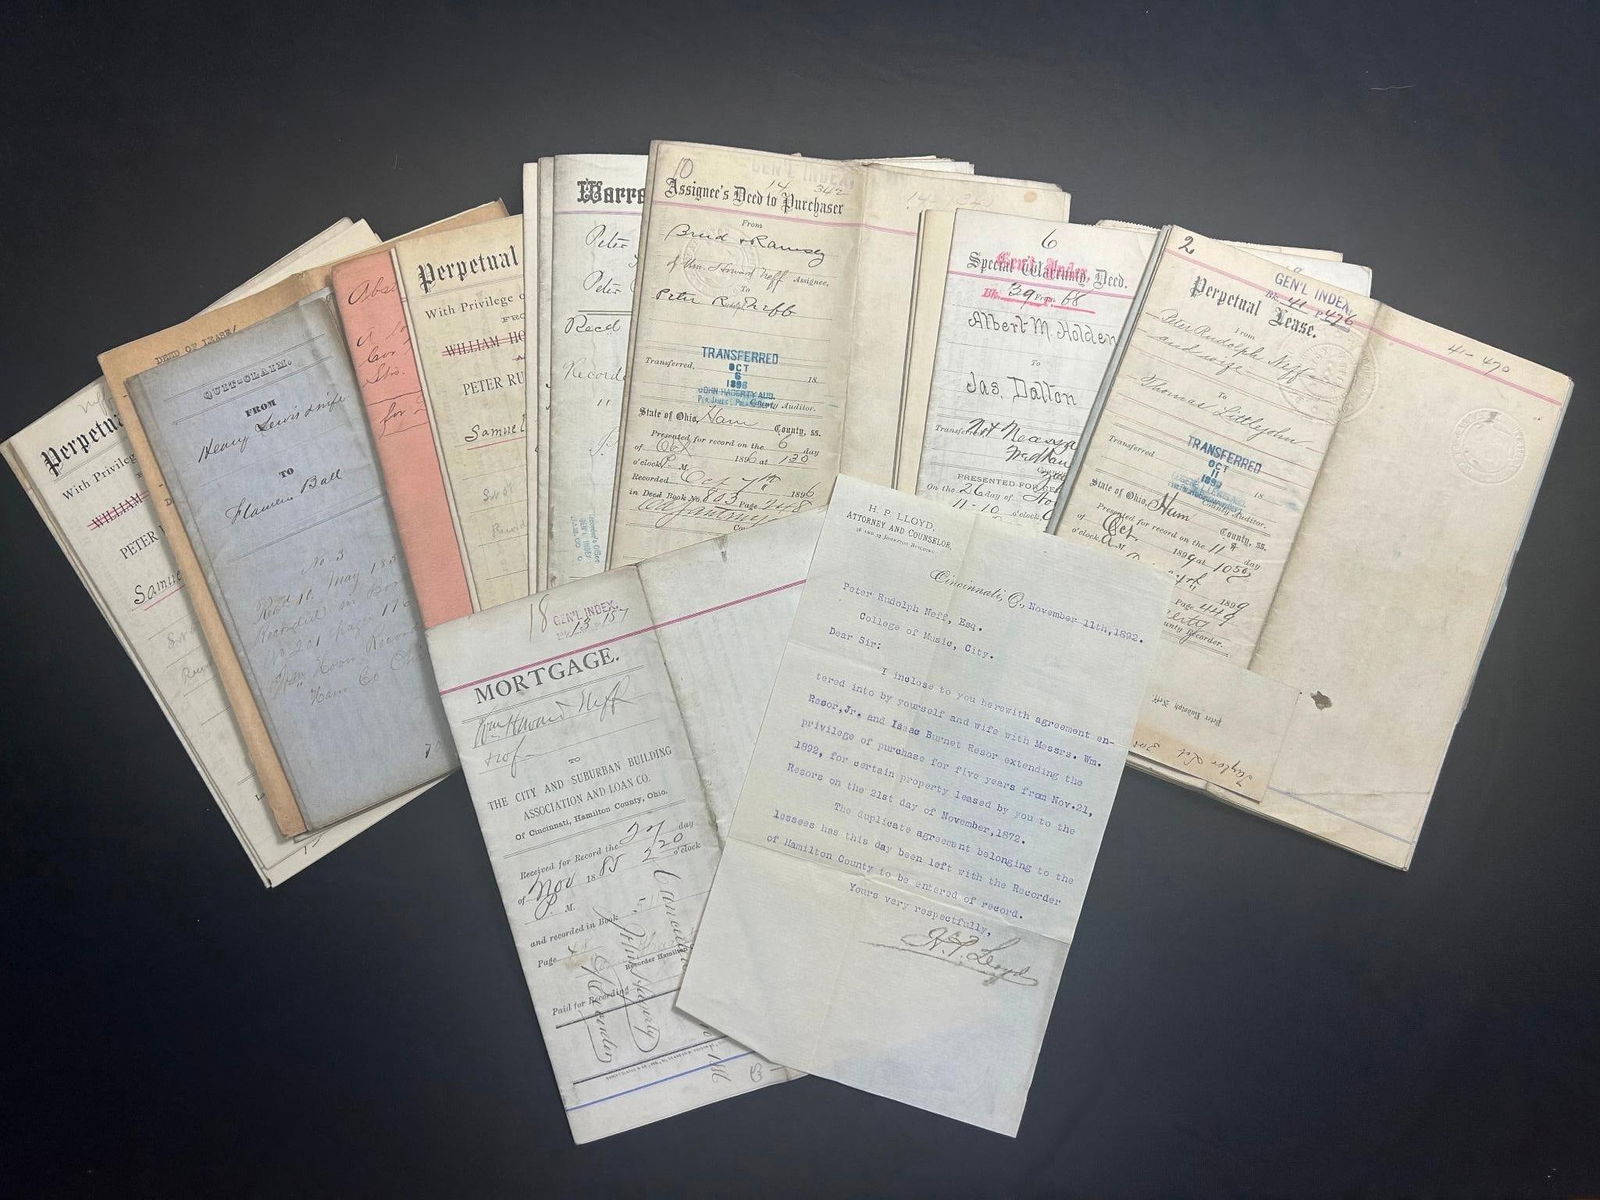 Perpetual
With Privilege
WILLIAM
PETER
Samuel
DEED OF LEASE
QUIT-CLAIM.
FROM
Henry Lewis & wife
TO
Flamen Ball
No 3
Recd 10. May 185
Recorded in Book
No 201 page 170
Ham Co Ohio
Abst
for
Perpetual
With Privilege o
FRO
WILLIAM HO
PETER RU
Samuel
Warra
Peter
Peter
Recd
Recorde
10
GEN'L INDEX,
14 342
Assignee's Deed to Purchaser
From
Brud & Ramsey
of Wm. Howard Neff Assignee,
To
Peter Rudolph Neff
TRANSFERRED
OCT
6
1896
JOHN HAGERTY AUD.
Transferred, 18
Auditor.
State of Ohio, Ham County, ss.
Presented for record on the 6 day
of Oct 1896 at 1 20
o'clock P. M.
Recorded Oct 7th 1896
in Deed Book No. 803 Page 248
14 342
6
Gen'l Index
Special Warranty Deed.
Bk. 39 Page 68
From
Albert M. Holden
TO
Jas. Dalton
Transferred
PRESENTED FOR RE
On the 26 day of
11-10 o'clock
2
GEN'L INDEX,
Bk. 41 P. 476
Perpetual Lease.
From
Peter Rudolph Neff
and wife
To
Thomas Littlejohn
Transferred
TRANSFERRED
OCT
11
1899
18
County Auditor.
State of Ohio, Ham County, ss.
Presented for record on the 11 day
of Oct. 1899 at 10 56
o'clock A M
1899
Page 449
County Recorder.
41 - 470
Peter Rudolph Neff
18
GEN'L INDEX,
13 157
MORTGAGE.
Wm Howard Neff
TO
THE CITY AND SUBURBAN BUILDING
ASSOCIATION AND LOAN CO.
Of Cincinnati, Hamilton County, Ohio.
Received for Record the 27 day
of Nov 1885 2 20 o'clock
P. M.
and recorded in Book
Page
Recorder Hamilton
Paid for Recording
John Hagerty
Recorder
Canceled
H. P. LLOYD,
ATTORNEY AND COUNSELOR,
Cincinnati, O., November 11th, 1892.
Peter Rudolph Neff, Esq.
College of Music, City.
Dear Sir:
I inclose to you herewith agreement en-
tered into by yourself and wife with Messrs. Wm.
Resor, Jr. and Isaac Burnet Resor extending the
privilege of purchase for five years from Nov. 21,
1892, for certain property leased by you to the
Resors on the 21st day of November, 1872.
The duplicate agreement belonging to the
lessees has this day been left with the Recorder
of Hamilton County to be entered of record.
Yours very respectfully,
H. P. Lloyd